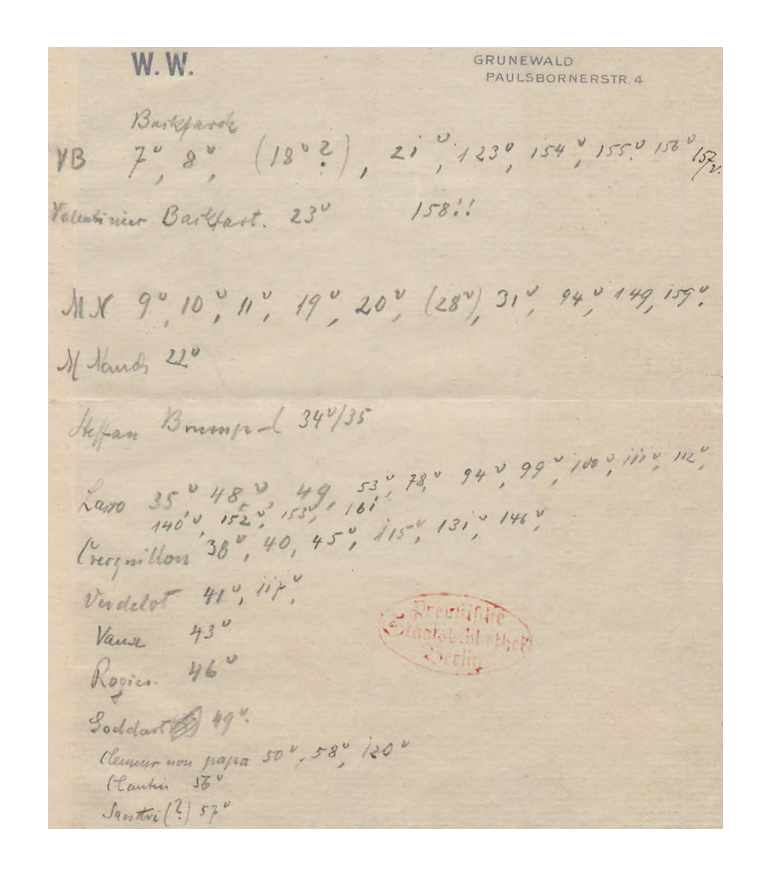 W. W.
GRUNEWALD
PAULSBORNERSTR. 4
Backfarck
VB 7ᵛ, 8ᵛ, (18ᵛ ?), 21ᵛ, 123ᵛ, 154ᵛ, 155ᵛ. 156ᵛ 157/v.
Valentinier Backfart. 23ᵛ 158!!
M N 9ᵛ, 10ᵛ, 11ᵛ, 19ᵛ, 20ᵛ, (28ᵛ), 31ᵛ, 94ᵛ, 149, 159ᵛ.
M 22ᵛ
Steffan 34ᵛ/35
Lasso 35ᵛ, 48ᵛ, 49, 53ᵛ, 78ᵛ, 94ᵛ, 99ᵛ, 100ᵛ, 111ᵛ, 112ᵛ,
140ᵛ, 152ᵛ, 153ᵛ, 161
Crequillon 38ᵛ, 40, 45ᵛ, 115ᵛ, 131ᵛ, 146ᵛ,
Verdelot 41ᵛ, 117ᵛ,
43ᵛ
Rogier. 46ᵛ
Goddart 49ᵛ.
Clemens non papa 50ᵛ, 58ᵛ, 120ᵛ
56ᵛ
(?) 57ᵛ
Preußische
Staatsbibliothek
Berlin